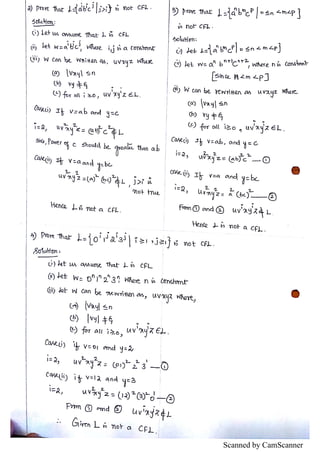 2) Prove that L={aⁱbⁱcʲ | j>i} is not CFL.
Solution:
(i) Let us assume that L is CFL
(ii) Let W=aⁱbⁱcʲ, where i,j is a constant
(iii) W can be written as, uvxyz where
(a) |Vxy| ≤n
(b) Vy ≠ ɛ
(c) for all i≥0, uvⁱxyⁱz ∈ L.
Case(i) If v=ab and y=c
i=2, uv²xy²z = (ab)²c² ∉ L
so, Power of c should be greater than ab
Case(ii) If v=a and y=bc
uv²xy²z = (a)² (bc)² ∉ L, j>i is
not true
Hence L is not a CFL.
3) Prove that L={aⁿbᵐcᵖ | 0≤n<m<p}
is not CFL.
Solution:
(i) Let L={aⁿbᵐcᵖ | 0≤n<m<p}
(ii) Let W= aⁿ bⁿ⁺¹cⁿ⁺² where n is constant
[Since n<m<p]
(iii) W can be rewritten as uvxyz where
(a) |Vxy| ≤n
(b) Vy ≠ ɛ
(c) for all i≥0, uvⁱxyⁱz ∈ L.
Case(i) If v=ab, and y=c
i=2, uv²xy²z = (ab)²c² —①
Case(ii) If v=a and y=bc
i=2, uv²xy²z = a²(bc)² —②
From ① and ② uvⁱxyⁱz ∉ L
Hence L is not a CFL.
4) Prove that L={0ⁱ1ʲ2ⁱ3ʲ | i≥1, j≥1} is not CFL.
Solution:
(i) Let us assume that L is CFL
(ii) Let W= 0ⁿ1ⁿ2ⁿ3ⁿ where n is constant
(iii) Let W can be rewritten as, uvxyz where,
(a) |Vxy| ≤n
(b) |Vy| ≠ ɛ
(c) for all i≥0, uvⁱxyⁱz ∈ L.
Case(i) if v=01 and y=2
i=2, uv²xy²z = (01)² 2² 3¹ —①
Case(ii) if v=12 and y=3
i=2, uv²xy²z = (12)² (3)² 0¹ —②
From ① and ② uvⁱxyⁱz ∉ L
∴ Given L is not a CFL.
Scanned by CamScanner